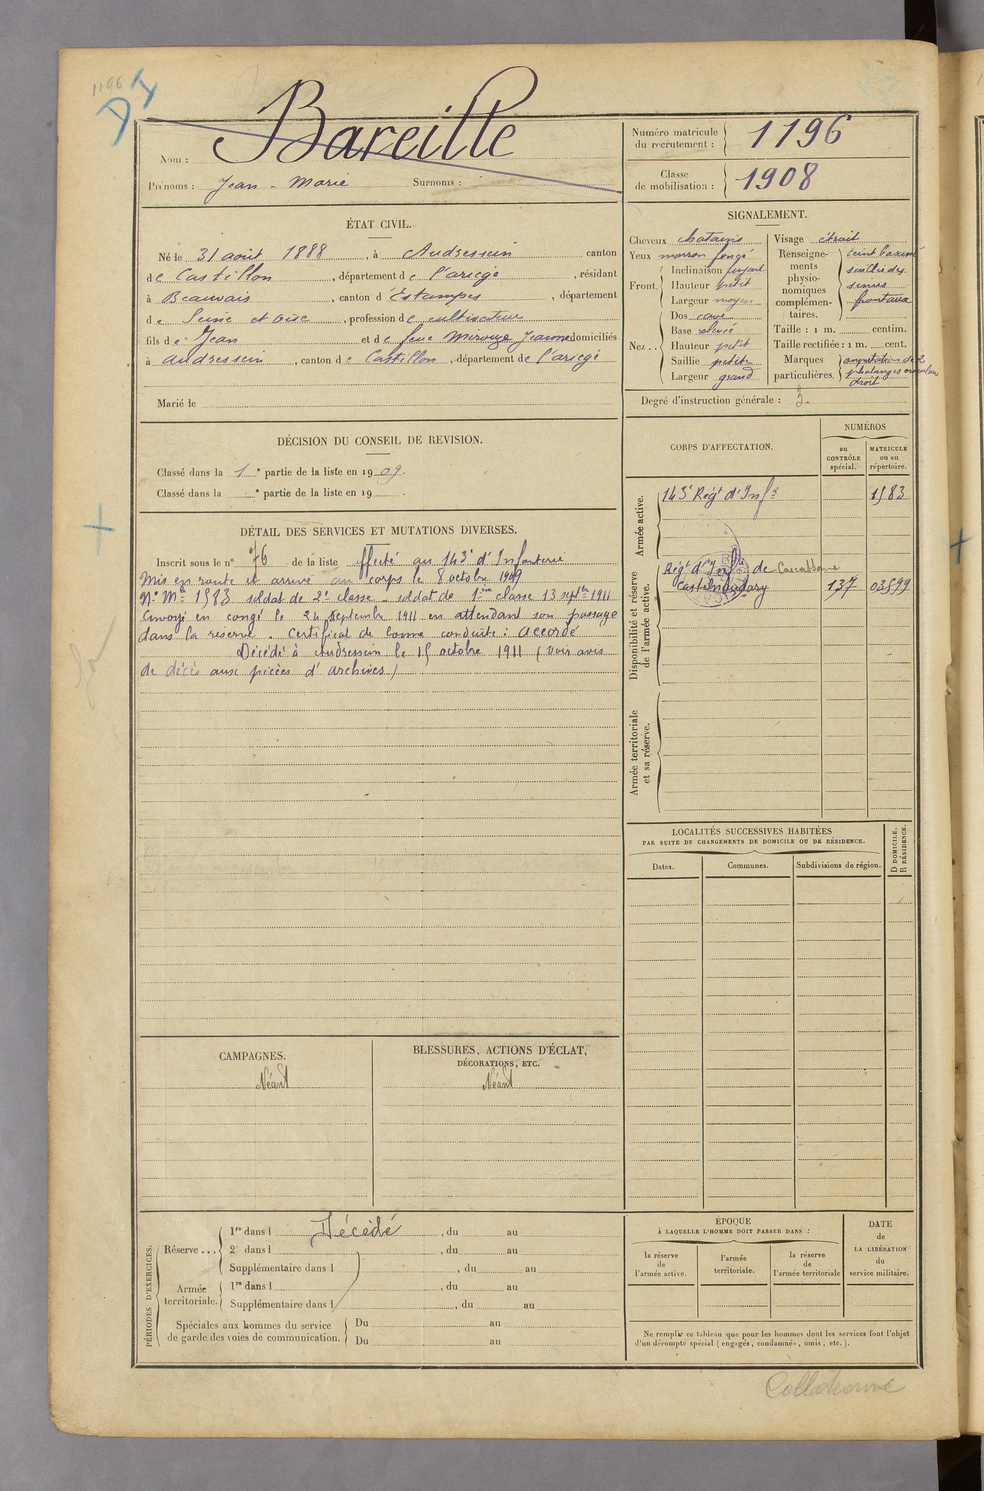 1196
DI
Nom : Bareille
Prénoms : Jean - Marie Surnoms :
Numéro matricule du recrutement : 1196
Classe de mobilisation : 1908
ÉTAT CIVIL.
Né le 31 août 1888, à Audressein canton
de Castillon, département de l'ariège, résidant
à Beauvais, canton d'Estampes, département
de Seine et oise, profession de cultivateur
fils de Jean et de feue Mirouze Jeanne domiciliés
à audressein, canton de Castillon, département de l'ariège
Marié le
SIGNALEMENT.
Cheveux chatains
Yeux marron foncé
Front. Inclinaison fuyant
Hauteur petit
Largeur moyen
Nez.. Dos cave
Base relevé
Hauteur petit
Saillie petite
Largeur grand
Visage étroit
Renseignements physionomiques complémentaires.
sinus
frontaux
Taille : 1 m. centim.
Taille rectifiée : 1 m. cent.
Marques particulières. amputation de 2
phalanges
droit
Degré d'instruction générale : 3.
DÉCISION DU CONSEIL DE REVISION.
Classé dans la 1e partie de la liste en 1909.
Classé dans la e partie de la liste en 19 .
DÉTAIL DES SERVICES ET MUTATIONS DIVERSES.
Inscrit sous le n° 76 de la liste affecté au 143e d'Infanterie
Mis en route et arrivé au corps le 8 octobre 1909
N° Mle 1583 soldat de 2e classe - soldat de 1ère classe 13 septbre 1911
Envoyé en congé le 24 Septembre 1911 en attendant son passage
dans la réserve. Certificat de bonne conduite : accordé
Décédé à Audressein le 15 octobre 1911 (Voir avis
de décès aux pièces d'archives)
CORPS D'AFFECTATION.
NUMÉROS
au CONTRÔLE spécial.
MATRICULE ou au répertoire.
Armée active.
143e Régt d'Infie 1583
Disponibilité et réserve de l'armée active.
Régt d'Infie de Carcassonne
Castelnaudary 137 03599
Armée territoriale et sa réserve.
LOCALITÉS SUCCESSIVES HABITÉES
PAR SUITE DE CHANGEMENTS DE DOMICILE OU DE RÉSIDENCE.
Dates. Communes. Subdivisions de région. D DOMICILE. R RÉSIDENCE.
CAMPAGNES.
Néant
BLESSURES, ACTIONS D'ÉCLAT,
DÉCORATIONS, ETC.
Néant
PÉRIODES D'EXERCICES.
Réserve ... 1re dans l Décédé, du au
2e dans l , du au
Supplémentaire dans l , du au
Armée territoriale. 1re dans l , du au
Supplémentaire dans l , du au
Spéciales aux hommes du service de garde des voies de communication. Du au
Du au
ÉPOQUE
À LAQUELLE L'HOMME DOIT PASSER DANS :
la réserve de l'armée active.
l'armée territoriale.
la réserve de l'armée territoriale
DATE
DE
LA LIBÉRATION
du
service militaire.
Ne remplir ce tableau que pour les hommes dont les services font l'objet
d'un décompte spécial (engagés, condamnés, omis, etc.).
Collationné